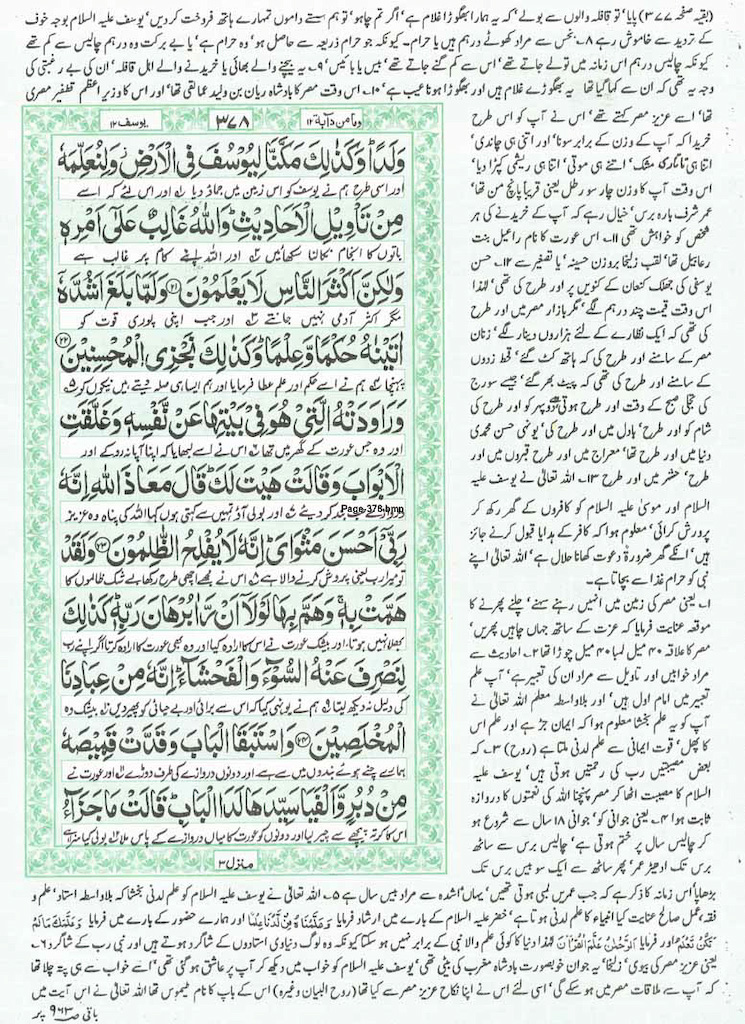 (بقیہ صفحہ ۳۷۷) پایا' تو قافلہ والوں سے بولے' کہ یہ ہمارا بھگوڑا غلام ہے' اگر تم چاہو' تو ہم سستے داموں تمہارے ہاتھ فروخت کر دیں' یوسف علیہ السلام بوجہ خوف
کے تردید سے خاموش رہے ۸۔ بخس سے مراد کھوٹے درہم ہیں یا حرام۔ کیونکہ جو حرام ذریعہ سے حاصل ہو' وہ حرام ہے' یا بے برکت وہ درہم چالیس سے کم تھے
کیونکہ چالیس درہم اس زمانہ میں تولے جاتے تھے' اس سے کم گنے جاتے تھے' بیس یا بائیس' ۹۔ یہ بیچنے والے بھائی یا خریدنے والے اہل قافلہ' ان کی بے رغبتی کی
وجہ یہ تھی کہ ان سے کہا گیا تھا یہ بھگوڑے غلام ہیں اور بھگوڑا ہونا عیب ہے' ۱۰۔ اس وقت مصر کا بادشاہ ریان بن ولید عمالقی تھا' اور اس کا وزیر اعظم قطفیر مصری
یوسف ۱۲
۳۷۸
وما من دابة ۱۲
وَلَدًا وَكَذٰلِكَ مَكَّنَّا لِيُوْسُفَ فِي الْاَرْضِ وَلِنُعَلِّمَهٗ
اور اسی طرح ہم نے یوسف کو اس زمین میں جماؤ دیا اور اس لئے کہ اسے
مِنْ تَاْوِيْلِ الْاَحَادِيْثِ وَاللّٰهُ غَالِبٌ عَلٰٓى اَمْرِهٖ
باتوں کا انجام نکالنا سکھائیں اور اللہ اپنے کام پر غالب ہے
وَلٰكِنَّ اَكْثَرَ النَّاسِ لَا يَعْلَمُوْنَ ۲۱ وَلَمَّا بَلَغَ اَشُدَّهٗٓ
مگر اکثر آدمی نہیں جانتے اور جب اپنی پوری قوت کو
اٰتَيْنٰهُ حُكْمًا وَّعِلْمًا وَكَذٰلِكَ نَجْزِي الْمُحْسِنِيْنَ ۲۲
پہنچا ہم نے اسے حکم اور علم عطا فرمایا اور ہم ایسا ہی صلہ دیتے ہیں نیکوں کو
وَرَاوَدَتْهُ الَّتِيْ هُوَ فِيْ بَيْتِهَا عَنْ نَّفْسِهٖ وَغَلَّقَتِ
اور وہ جس عورت کے گھر میں تھا اس نے اسے لبھایا کہ اپنا آپا نہ روکے اور
الْاَبْوَابَ وَقَالَتْ هَيْتَ لَكَ قَالَ مَعَاذَ اللّٰهِ اِنَّهٗ
دروازے سب بند کر دیئے اور بولی آؤ تمہیں سے کہتی ہوں کہا اللہ کی پناہ وہ عزیز تو
Page-378.bmp
رَبِّيْٓ اَحْسَنَ مَثْوَايَ اِنَّهٗ لَا يُفْلِحُ الظّٰلِمُوْنَ ۲۳ وَلَقَدْ
میرا رب یعنی پرورش کرنے والا ہے اس نے مجھے اچھی طرح رکھا بے شک ظالموں کا
هَمَّتْ بِهٖ وَهَمَّ بِهَا لَوْلَآ اَنْ رَّاٰ بُرْهَانَ رَبِّهٖ كَذٰلِكَ
بھلا نہیں ہوتا اور بیشک عورت نے اس کا ارادہ کیا اور وہ بھی عورت کا ارادہ کرتا اگر اپنے رب
لِنَصْرِفَ عَنْهُ السُّوْٓءَ وَالْفَحْشَآءَ اِنَّهٗ مِنْ عِبَادِنَا
کی دلیل نہ دیکھ لیتا ہم نے یونہی کیا کہ اس سے برائی اور بے حیائی کو پھیر دیں بیشک وہ
الْمُخْلَصِيْنَ ۲۴ وَاسْتَبَقَا الْبَابَ وَقَدَّتْ قَمِيْصَهٗ
ہمارے چنے ہوئے بندوں میں سے ہے اور دونوں دروازے کی طرف دوڑے اور عورت نے
مِنْ دُبُرٍ وَّاَلْفَيَا سَيِّدَهَا لَدَا الْبَابِ قَالَتْ مَا جَزَآءُ
اس کا کرتہ پیچھے سے چیر لیا اور دونوں کو عورت کا میاں دروازے کے پاس ملا بولی کیا سزا ہے
منزل ۳
تھا' اسے عزیز مصر کہتے تھے' اس نے آپ کو اس طرح
خریدا کہ آپ کے وزن کے برابر سونا' اور اتنی ہی چاندی'
اتنا ہی تاتاری مشک' اتنے ہی موتی' اتنا ہی ریشمی کپڑا دیا'
اس وقت آپ کا وزن چار سو رطل یعنی قریباً پانچ من تھا'
عمر شرف بارہ برس' خیال رہے کہ آپ کے خریدنے کی ہر
شخص کو خواہش تھی ۱۱۔ اس عورت کا نام راعیل بنت
رعابیل تھا' لقب زلیخا بروزن حسینہ' یا تصغیر سے ۱۲۔ حسن
یوسفی کی جھلک کنعان کے کنویں پر اور طرح کی تھی' لہٰذا
اس وقت قیمت چند درہم لگے' مگر بازار مصر میں اور طرح
کی تھی کہ ایک نظارے کے لئے ہزاروں دینار لگے' زنان
مصر کے سامنے اور طرح کی کہ ہاتھ کٹ گئے' قحط زدوں
کے سامنے اور طرح کی تھی کہ پیٹ بھر گئے' جیسے سورج
کی تجلی صبح کے وقت اور طرح ہوتی ہے دوپہر کو اور طرح کی
شام کو اور طرح کی' بادل میں اور طرح کی' یونہی حسن محمدی
دنیا میں اور طرح تھا' معراج میں اور طرح قبروں میں اور
طرح' حشر میں اور طرح ۱۳۔ اللہ تعالیٰ نے یوسف علیہ
السلام اور موسیٰ علیہ السلام کو کافروں کے گھر رکھ کر
پرورش کرائی' معلوم ہوا کہ کافر کے ہدایا قبول کرنے جائز
ہیں' انکے گھر ضرورۃً دعوت کھانا حلال ہے' اللہ تعالیٰ اپنے
نبی کو حرام غذا سے بچاتا ہے۔
۱۔ یعنی مصر کی زمین میں انہیں رہنے سہنے' چلنے پھرنے کا
موقعہ عنایت فرمایا کہ عزت کے ساتھ جہاں چاہیں پھریں'
مصر کا علاقہ ۴۰ میل لمبا ۴۰ میل چوڑا تھا ۲۔ احادیث سے
مراد خوابیں اور تاویل سے مراد ان کی تعبیر ہے' آپ علم
تعبیر میں امام اول ہیں' اور بلاواسطہ معلم اللہ تعالیٰ نے
آپ کو یہ علم بخشا معلوم ہوا کہ ایمان جڑ ہے اور علم اس
کا پھل' قوت ایمانی سے علم لدنی ملتا ہے (روح) ۳۔ کہ
بعض مصیبتیں رب کی رحمتیں ہوتی ہیں' یوسف علیہ
السلام کا مصیبت اٹھا کر مصر پہنچنا اللہ کی نعمتوں کا دروازہ
ثابت ہوا ۴۔ یعنی جوانی کو' جوانی ۱۸ سال سے شروع ہو
کر چالیس سال پر ختم ہوتی ہے' چالیس برس سے ساٹھ
برس تک ادھیڑ عمر' پھر ساٹھ سے ایک سو بیس برس تک
بڑھاپا اس زمانہ کا ذکر ہے کہ جب عمریں لمبی ہوتی تھیں' یہاں اشدہ سے مراد بیس سال ہے ۵۔ اللہ تعالیٰ نے یوسف علیہ السلام کو علم لدنی بخشا کہ بلاواسطہ استاد' علم و
فقہ' عمل صالح عنایت کیا انبیاء کا علم لدنی ہوتا ہے' خضر علیہ السلام کے بارے میں ارشاد فرمایا وَعَلَّمْنٰهُ مِنْ لَّدُنَّا عِلْمًا اور ہمارے حضور کے بارے میں فرمایا وَعَلَّمَكَ مَا لَمْ
تَكُنْ تَعْلَمُ اور فرمایا اَلرَّحْمٰنُ عَلَّمَ الْقُرْاٰنَ لہٰذا دنیا کا کوئی علم والا نبی کے برابر نہیں ہو سکتا کیونکہ وہ لوگ دنیاوی استادوں کے شاگرد ہوتے ہیں اور نبی رب کے شاگرد ۶۔
یعنی عزیز مصر کی بیوی' زلیخا' یہ جوان خوبصورت بادشاہ مغرب کی بیٹی تھی' یوسف علیہ السلام کو خواب میں دیکھ کر آپ پر عاشق ہو گئی تھی' اسے خواب سے ہی پتہ چلا تھا
کہ آپ سے ملاقات مصر میں ہو سکے گی' اسی لئے اس نے اپنا نکاح عزیز مصر سے کیا تھا (روح البیان وغیرہ) اس کے باپ کا نام طیموس تھا اللہ تعالیٰ نے اس آیت میں
باقی ص ۹۶۳ پر